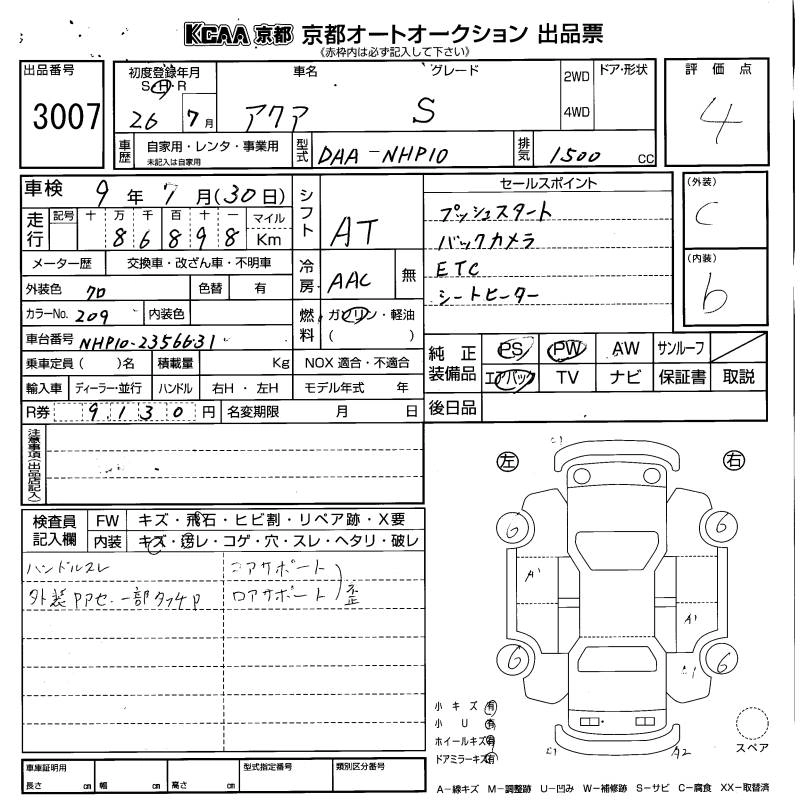 KCAA 京都 京都オートオークション 出品票
《赤枠内は必ず記入して下さい》
出品番号 3007
初度登録年月 S・H・R 26 7月
車名 アクア
グレード S
2WD 4WD ドア・形状
評価点 4
車歴 自家用・レンタ・事業用 未記入は自家用
型式 DAA-NHP10
排気 1500 cc
車検 9年7月(30日)
シフト AT
セールスポイント
プッシュスタート
バックカメラ
ETC
シートヒーター
(外装) C
(内装) b
走行 記号 十 万 千 百 十 一 マイル Km
8 6 8 9 8
メーター歴 交換車・改ざん車・不明車
冷房 AAC 無
外装色 クロ 色替 有
カラーNo. 209 内装色
燃料 ガソリン・軽油 ( )
車台番号 NHP10-2356631
純正装備品 PS PW AW サンルーフ
エアバック TV ナビ 保証書 取説
乗車定員( )名 積載量 Kg NOX 適合・不適合
輸入車 ディーラー・並行 ハンドル 右H・左H モデル年式 年
R券 9130円 名変期限 月 日
後日品
注意事項(出品店記入)
左 右
検査員記入欄 FW キズ・飛石・ヒビ割・リペア跡・X要
内装 キズ・汚レ・コゲ・穴・スレ・ヘタリ・破レ
ハンドルスレ コアサポート
外装PアセU 一部タッチP ロアサポート 歪
6 6
A1
A1
6 6
A2
小キズ 有
小U 有
ホイールキズ 有
ドアミラーキズ 有
スペア
車庫証明用 長さ cm 幅 cm 高さ cm
型式指定番号 類別区分番号
A-線キズ M-調整跡 U-凹み W-補修跡 S-サビ C-腐食 XX-取替済